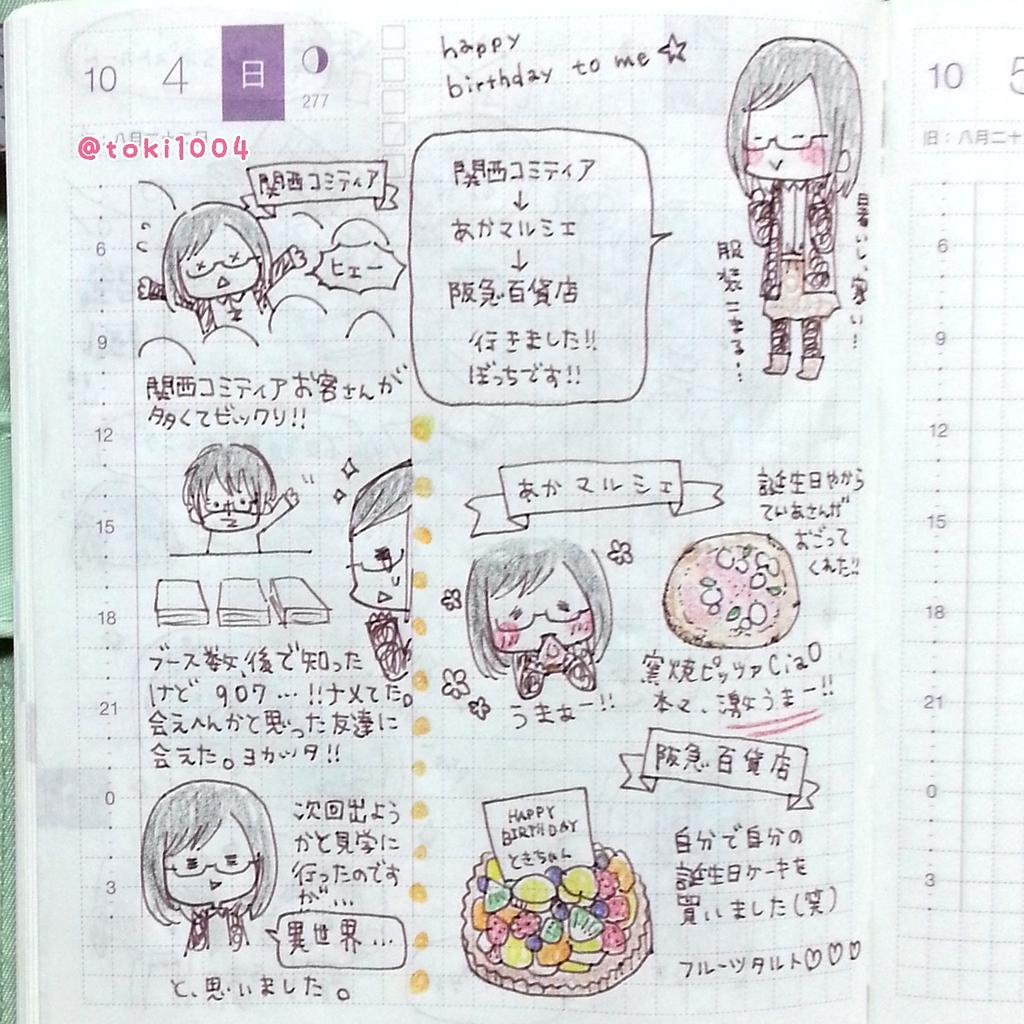 10 4 日
277
@toki1004
happy
birthday to me ☆
関西コミティア
↓
あかマルシェ
↓
阪急百貨店
行きました!!
ぼっちです!!
暑いし、寒い!
服装こまる…
関西コミティア
ヒェー
関西コミティアお客さんが
多くてビックリ!!
ブース数、後で知った
けど 907…!!ナメてた。
会えへんかと思った友達に
会えた。ヨカッタ!!
次回出よう
かと見学に
行ったのです
が…
異世界…
と、思いました。
あかマルシェ
誕生日やから
てぃあさんが
おごって
くれた!!
うまぁー!!
窯焼ピッツァCiaO
本々、激うまー!!
阪急百貨店
HAPPY
BIRTHDAY
ときちゃん
自分で自分の
誕生日ケーキを
買いました(笑)
フルーツタルト♡♡♡
6
9
12
15
18
21
0
3
10 5
旧：八月二十
6
9
12
15
18
21
0
3